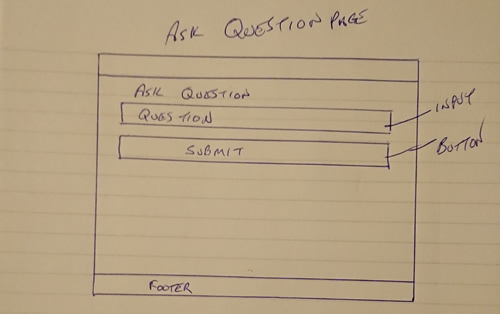 ASK QUESTION PAGE
ASK QUESTION
QUESTION
INPUT
SUBMIT
BUTTON
FOOTER